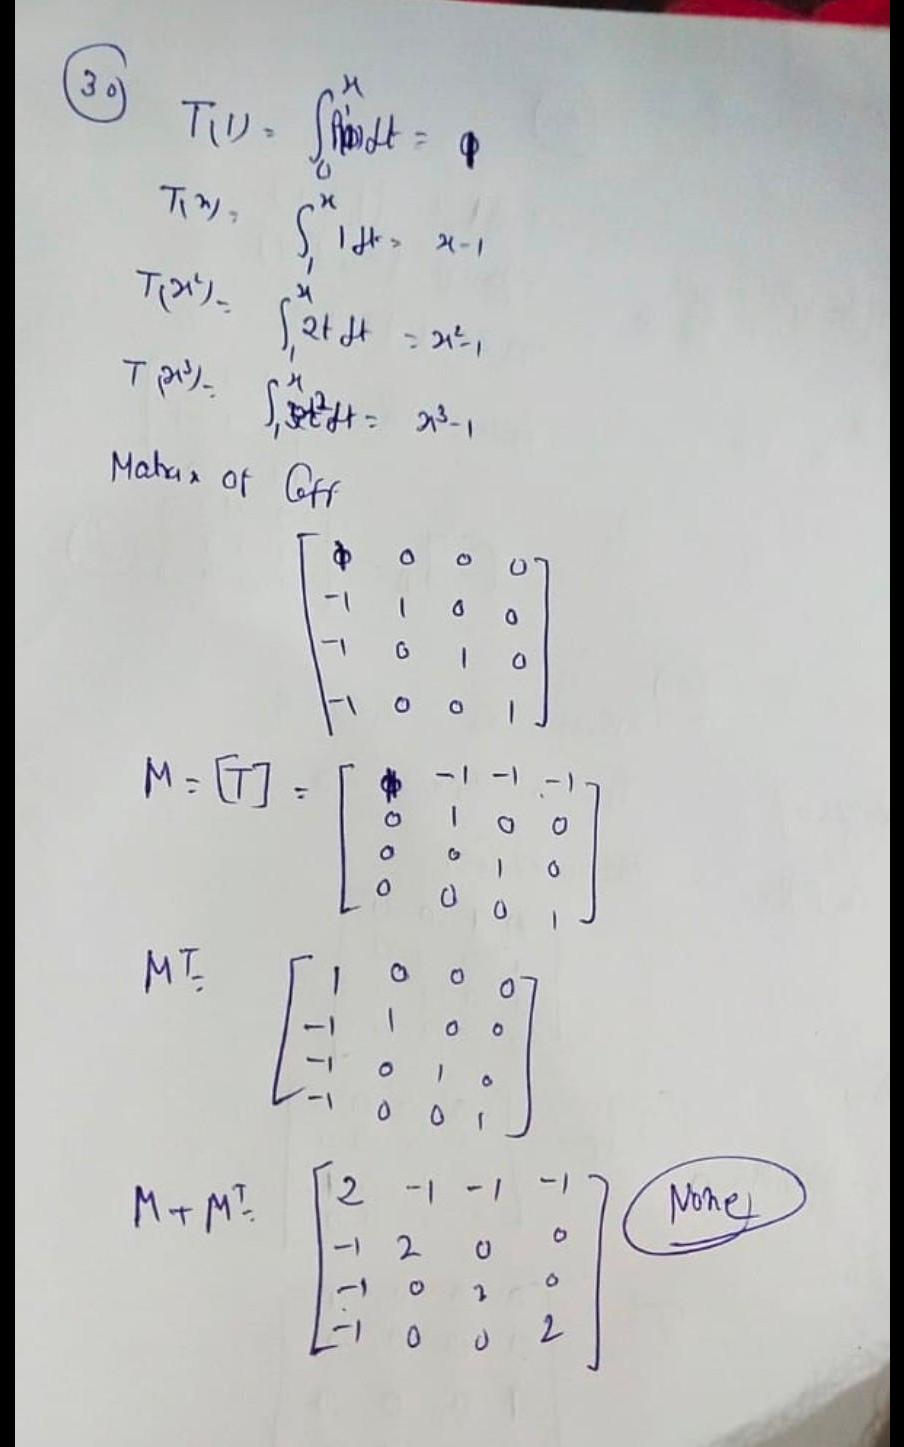 30
T(1) = ∫₀ˣ dt =
T(x) = ∫₁ˣ 1 dt = x-1
T(x²) = ∫₁ˣ 2t dt = x²-1
T(x³) = ∫₁ˣ 3t² dt = x³-1
Matrix of Coff
[ 0 0 0
-1 1 0 0
-1 0 1 0
-1 0 0 1 ]
M = [T] = [ -1 -1 -1
0 1 0 0
0 0 1 0
0 0 0 1 ]
Mᵀ = [ 1 0 0 0
-1 1 0 0
-1 0 1 0
-1 0 0 1 ]
M + Mᵀ = [ 2 -1 -1 -1
-1 2 0 0
-1 0 2 0
-1 0 0 2 ]
None